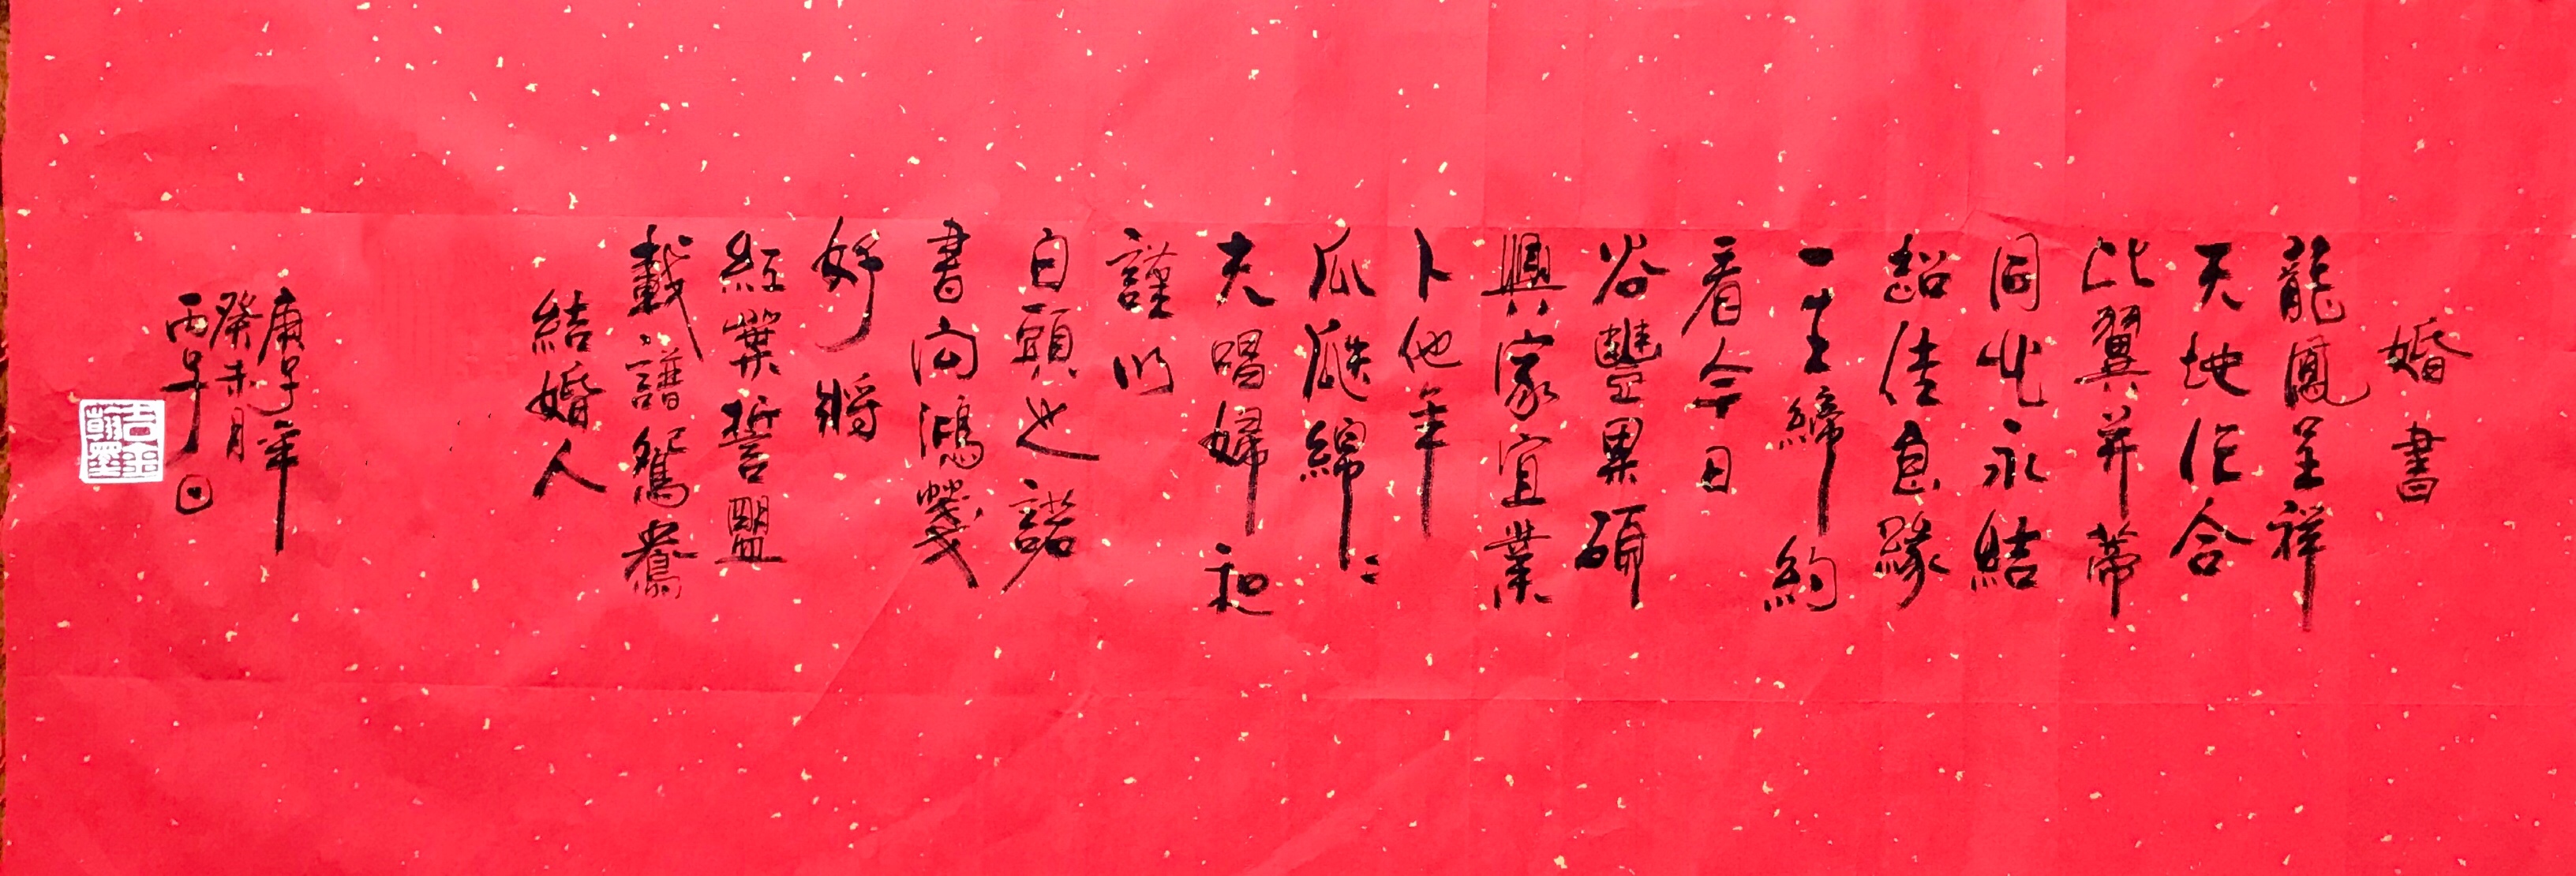 婚書
龍鳳呈祥
天地作合
比翼并蒂
同心永結
韶佳良緣
一堂締約
看今日
谷豐果碩
興家宜業
卜他年
瓜瓞綿〻
夫唱婦和
謹以
白頭之諾
書向鴻箋
好將
紅葉誓盟
載譜鴛鴦
結婚人
庚子年
癸未月
丙子日